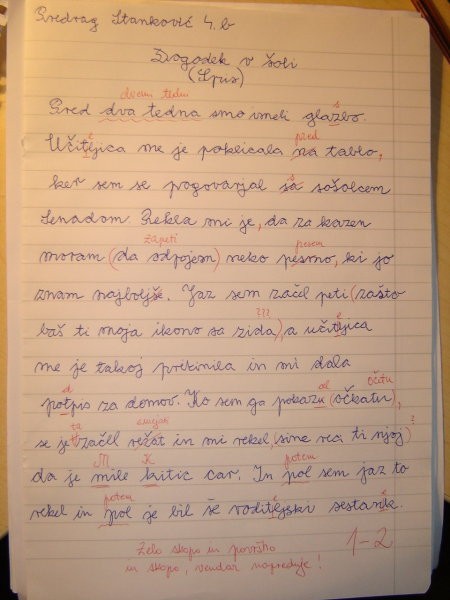 Predrag Stanković 4. b
Dogodek v šoli
(Spis)
dvemi tedni s
Pred dva tedna smo imeli glazbo.
e pred
Učitljica me je poklicala na tablo,
s
ker sem se pogovarjal sa sošolcem
Senadom. Rekla mi je, da za kazen
zapeti pesem
moram (da odpojem) neko pesmo, ki jo
znam najboljše. Jaz sem začel peti (zašto
??? e
baš ti moja ikono sa zida), a učitljica
me je takoj prekinila in mi dala
d al očitu
potpis za domov. Ko sem ga pokazu (očkatu),
ta smejati ?
se je začel režat in mi rekel, sine reci ti njoj
M K potem
da je mile kitic car. In pol sem jaz to
potem e e
rekel in pol je bil še roditljski sestank.
Zelo skopo in površno
in skopo, vendar napreduje!
1-2